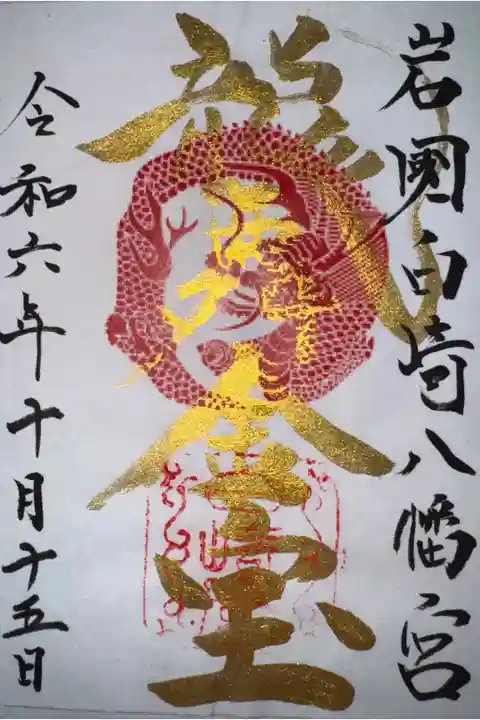 岩國白崎八幡宮
龍
金宝
令和六年十月十五日